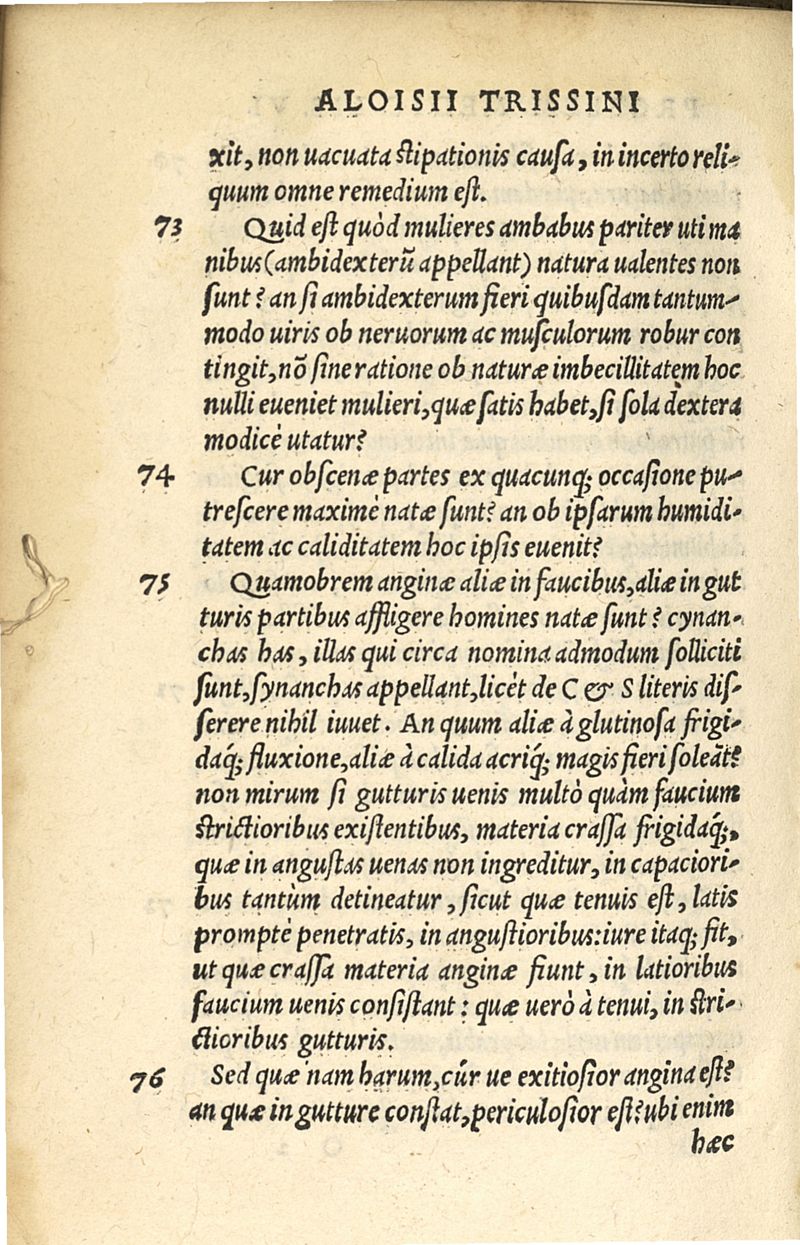 ALOISII TRISSINI
xit, non uacuata ſtipationis cauſa, in incerto reli-
quum omne remedium eſt.
73 Quid eſt quòd mulieres ambabus pariter uti ma
nibus (ambidexterũ appellant) natura ualentes non
ſunt? an ſi ambidexterum fieri quibuſdam tantum-
modo uiris ob neruorum ac muſculorum robur con
tingit, nõ ſine ratione ob naturæ imbecillitatem hoc
nulli eueniet mulieri, quæ ſatis habet, ſi ſola dextera
modicè utatur?
74 Cur obſcenæ partes ex quacunq; occaſione pu-
treſcere maximè natæ ſunt? an ob ipſarum humidi-
tatem ac caliditatem hoc ipſis euenit?
75 Quamobrem anginæ aliæ in faucibus, aliæ in gut
turis partibus affligere homines natæ ſunt? cynan-
chas has, illas qui circa nomina admodum ſolliciti
ſunt, ſynanchas appellant, licèt de C & S literis diſ-
ſerere nihil iuuet. An quum aliæ à glutinoſa frigi-
daq́; fluxione, aliæ à calida acriq́; magis fieri ſoleãt?
non mirum ſi gutturis uenis multò quàm faucium
ſtrictioribus exiſtentibus, materia craſſa frigidaq́;,
quæ in anguſtas uenas non ingreditur, in capaciori-
bus tantùm detineatur, ſicut quæ tenuis eſt, latis
promptè penetratis, in anguſtioribus: iure itaq; fit,
ut quæ craſſa materia anginæ fiunt, in latioribus
faucium uenis conſiſtant: quæ uerò à tenui, in ſtri-
ctioribus gutturis.
76 Sed quæ nam harum, cúr ue exitioſior angina eſt?
an quæ in gutture conſtat, periculoſior eſt? ubi enim
hæc